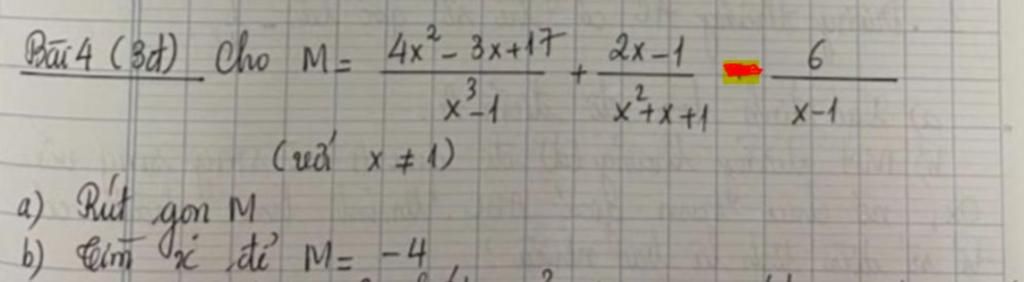 Bài 4 (3đ) Cho M = (4x² - 3x + 17)/(x³ - 1) + (2x - 1)/(x² + x + 1) - 6/(x - 1)
(với x ≠ 1)
a) Rút gọn M
b) Tìm x để M = -4